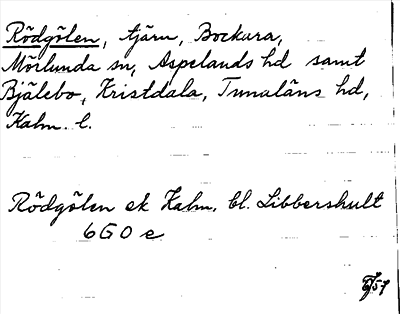 Rödgölen, tjärn, Bockara,
Mörlunda sn, Aspelands hd samt
Bjälebo, Kristdala, Tunaläns hd,
Kalm. l.
Rödgölen ek Kalm. bl. Libbershult
6G0e